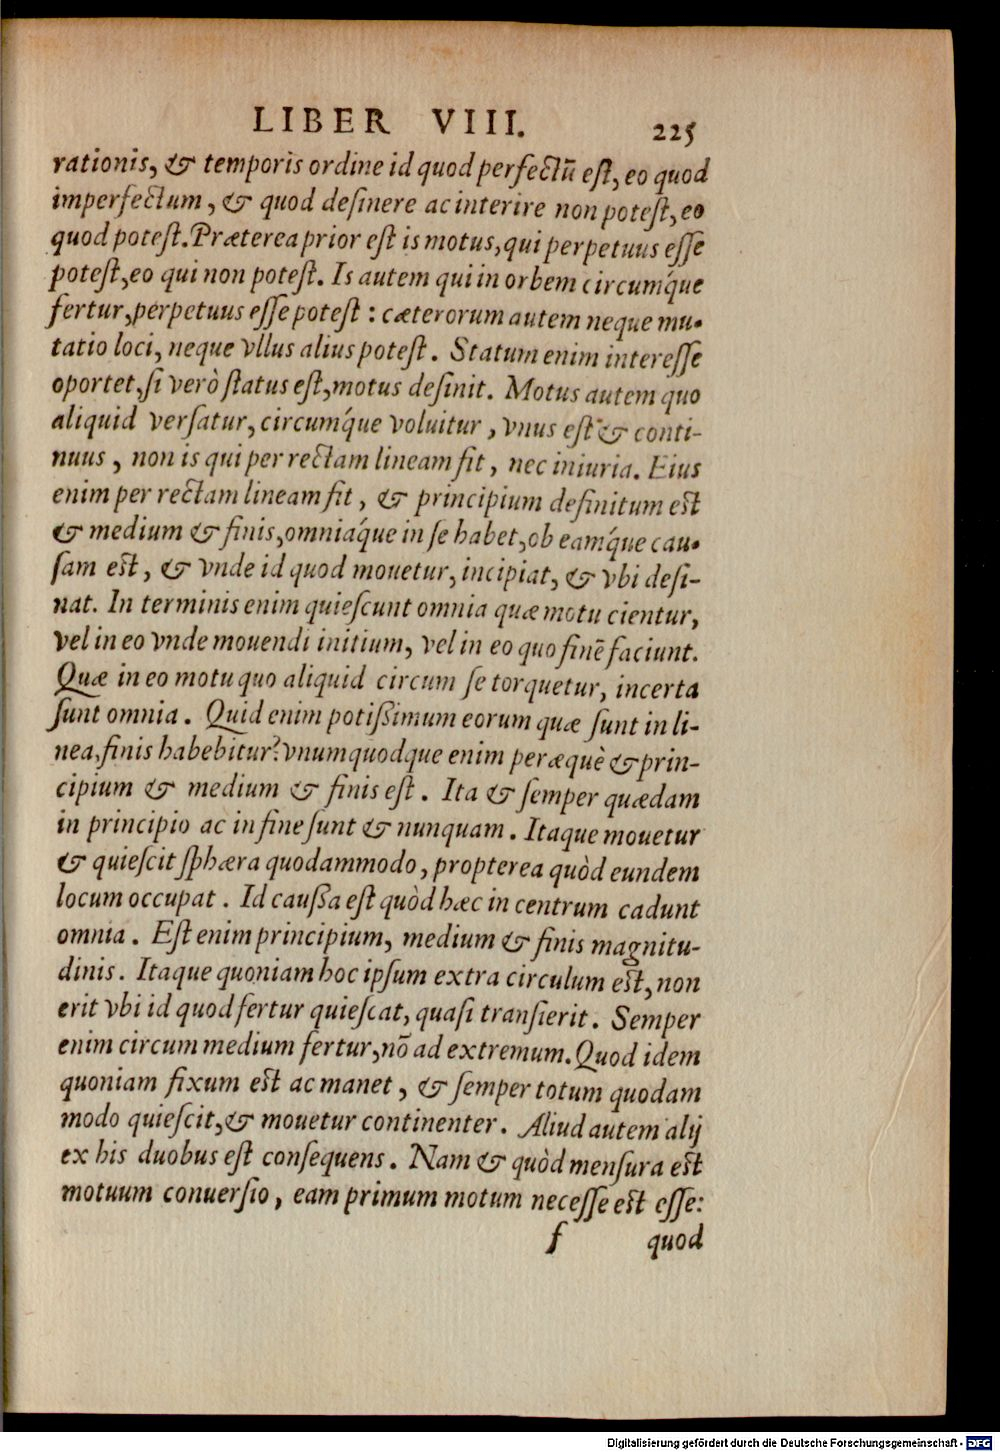 LIBER VIII. 225
rationis, & temporis ordine id quod perfectū est, eo quod
imperfectum, & quod desinere ac interire non potest, eo
quod potest. Præterea prior est is motus, qui perpetuus esse
potest, eo qui non potest. Is autem qui in orbem circumq́ue
fertur, perpetuus esse potest : cæterorum autem neque mu-
tatio loci, neque vllus alius potest. Statum enim interesse
oportet, si verò status est, motus desinit. Motus autem quo
aliquid versatur, circumq́ue voluitur, vnus est & conti-
nuus, non is qui per rectam lineam fit, nec iniuria. Eius
enim per rectam lineam fit, & principium definitum est
& medium & finis, omniaq́ue in se habet, ob eamq́ue cau-
sam est, & vnde id quod mouetur, incipiat, & vbi desi-
nat. In terminis enim quiescunt omnia quæ motu cientur,
vel in eo vnde mouendi initium, vel in eo quo finē faciunt.
Quæ in eo motu quo aliquid circum se torquetur, incerta
sunt omnia. Quid enim potißimum eorum quæ sunt in li-
nea, finis habebitur? vnumquodque enim peræquè & prin-
cipium & medium & finis est. Ita & semper quædam
in principio ac in fine sunt & nunquam. Itaque mouetur
& quiescit sphæra quodammodo, propterea quòd eundem
locum occupat. Id caußa est quòd hæc in centrum cadunt
omnia. Est enim principium, medium & finis magnitu-
dinis. Itaque quoniam hoc ipsum extra circulum est, non
erit vbi id quod fertur quiescat, quasi transierit. Semper
enim circum medium fertur, nō ad extremum. Quod idem
quoniam fixum est ac manet, & semper totum quodam
modo quiescit, & mouetur continenter. Aliud autem alij
ex his duobus est consequens. Nam & quòd mensura est
motuum conuersio, eam primum motum necesse est esse:
f quod
Digitalisierung gefördert durch die Deutsche Forschungsgemeinschaft - DFG